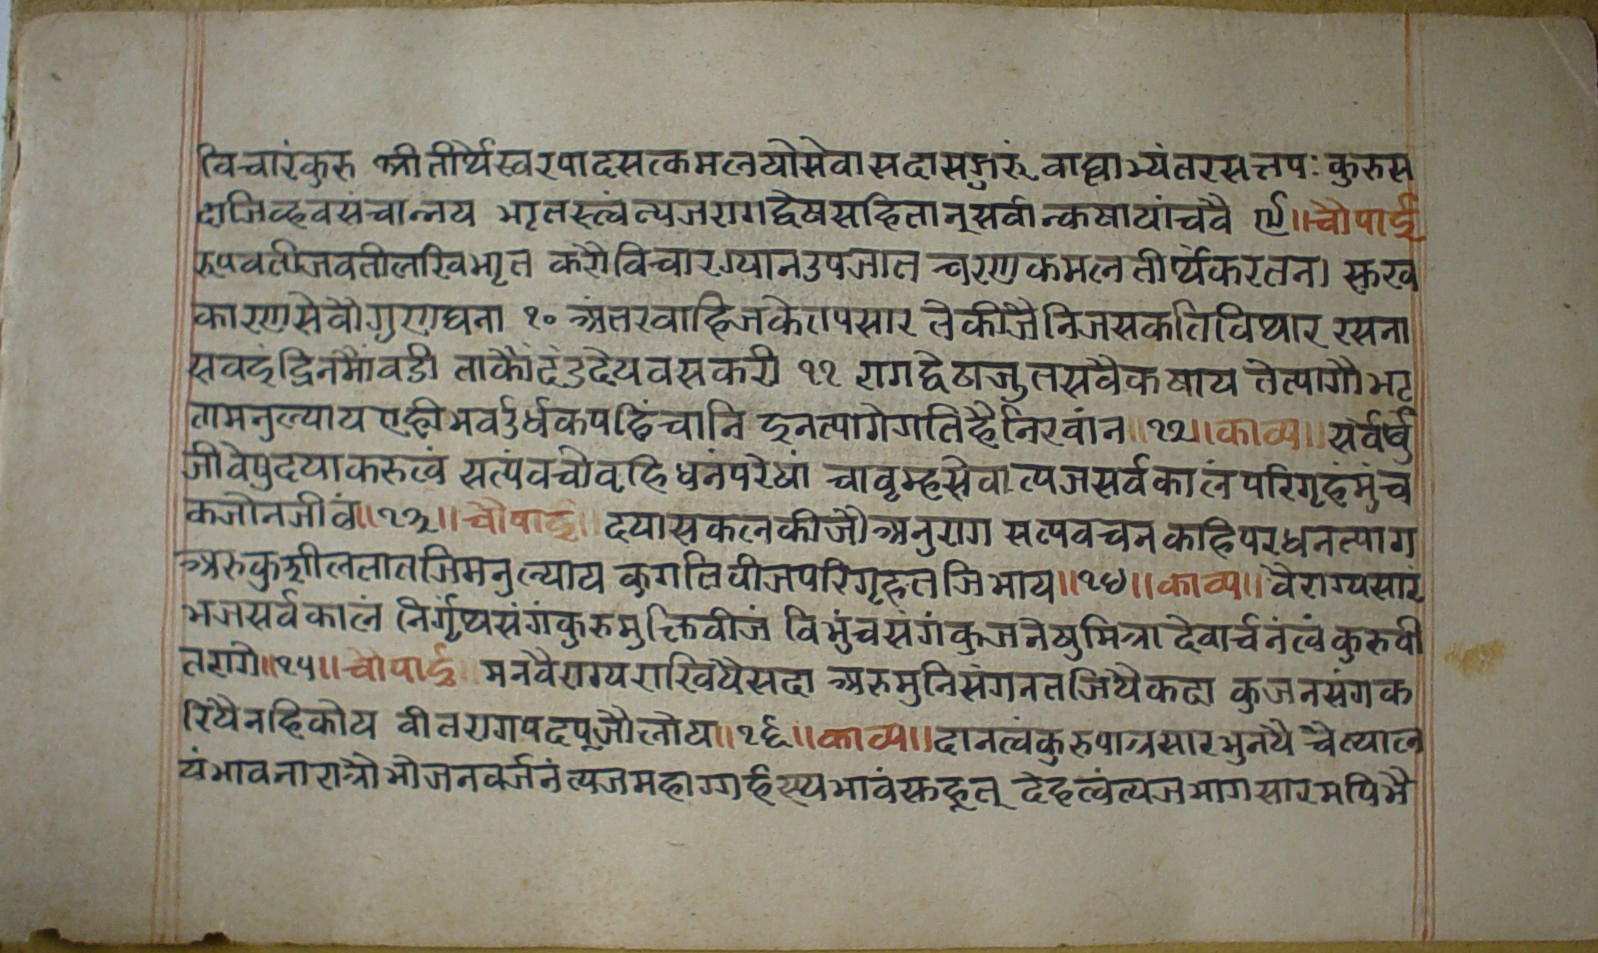 विचारंकुरु श्रीतीर्थेस्वरपादसत्कमलयोसेवासदासद्गुरुं वाह्याभ्यंतरसत्तपः कुरुस
दाजिव्हवसंचान्नय भ्रातस्त्वंत्यजरागद्वेषसहितान् सर्वान्कषायांचवै ९॥चौपाई
रुपवतीजवतीलखिभ्रात करौविचारग्यानउपजात चरणकमलतीर्थकरतन। स्करव
कारणसेवौगुरणघना १० अंतरवाहिजकेतपसार तेकीजैनिजसकतिविथार रसना
सवइंद्रिनमैंवडी ताकौदंडदेयवसकरी ११ रागद्वेषजुतसवैकषाय तेत्यागौभ्रा
तामनुल्याय एह्रीभवउर्धकपहिंचानि इनत्यागेगतिहैनिरवांन॥१२॥काव्य॥ सर्वेषु
जीवेषुदयाकरुत्वं सत्यंवचोवृहिधनंपरेषां चावृम्हसेवात्यजसर्वकालंपरिगृहंमुंच
कजोनजीवं॥१३॥चौपाई॥ दयासकलकीजौअनुराग सत्यवचनकहिपरधनत्याग
अरुकुशीललातजिमनुल्याय कुगतिवीजपरिगृहतजिभाय॥१४॥काव्य॥ वैराग्यसारं
भजसर्वकालं निर्गृंथसंगंकुरुमुक्तिवीजं विमुंचसंगंकुजनेषुमित्रा देवार्चनंत्वंकुरुवी
तरागे॥१५॥चौपाई मनवैराग्यराखियैसदा अरुमुनिसंगनतजियैकदा कुजनसंगक
रियैनहिकोय वीतरागपदपूजौलोय॥१६॥काव्य॥दानत्वंकुरुपात्रसारमुनयै चैत्याल
यंभावनारात्रौभोजनवर्जनंत्यजमहागार्हस्थभावंस्कहृत् देहत्वंत्यजभागसारमपिभै